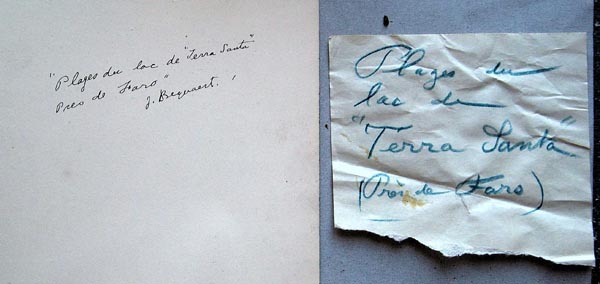 "Plages du lac de "Terra Santa"
Près de Faro"
J. Bequaert.
Plages du
lac de
"Terra Santa"
(Près de Faro)